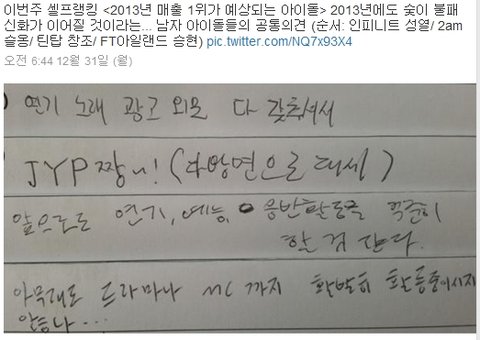 이번주 셀프랭킹 <2013년 매출 1위가 예상되는 아이돌> 2013년에도 숮이 불패
신화가 이어질 것이라는... 남자 아이돌들의 공통의견 (순서: 인피니트 성열/ 2am
슬옹/ 틴탑 창조/ FT아일랜드 승현) pic.twitter.com/NQ7x93X4
오전 6:44 12월 31일 (월)
) 연기 노래 광고 외모 다 갖추셔서
JYP 짱니! (다방면으로 대세)
앞으로도 연기, 예능, 음반활동을 꾸준히
할 것 같다.
아무래도 드라마나 MC 까지 활발히 활동중이시지
않습니까...